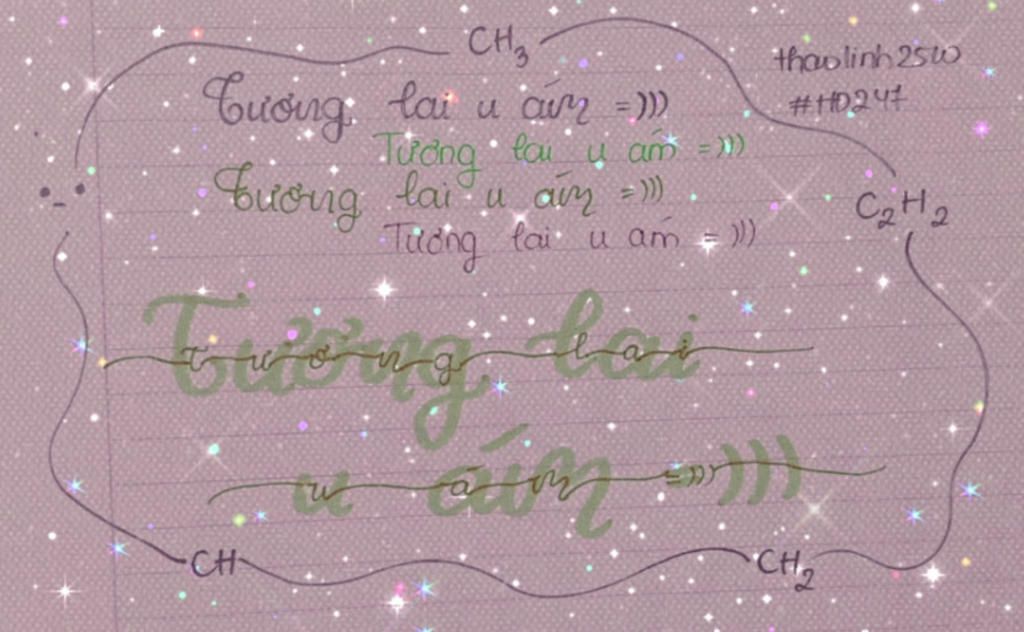 CH3
thaolinh25w
#HD247
Tương lai u ám =)))
Tương lai u ám =)))
Tương lai u ám =)))
Tương lai u ám =)))
C2H2
Tương lai
Tương lai
u ám )))
u ám =)))
CH
CH2